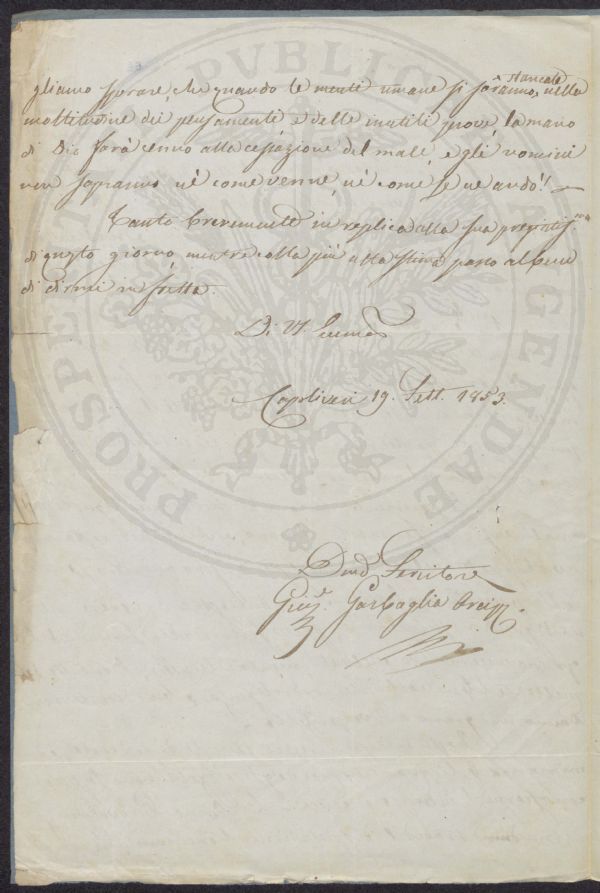 gliamo sperare, che quando le menti umane si saranno stancate nella
moltitudine dei pensamenti e delle inutili prove, la mano
di Dio farà cenno alla cessazione del male, e gli uomini
non sapranno nè come venne, nè come se ne andò!! —
Tanto brevemente in replica alla sua pregiatiss.ma
di questo giorno, mentre colla più alta stima passo al bene
di dirmi in fretta.
Di VS.
Capoliveri 19. Sett. 1853.
Servitore
Garbaglia
PROSPERITATI PVBLICAE AVGENDAE